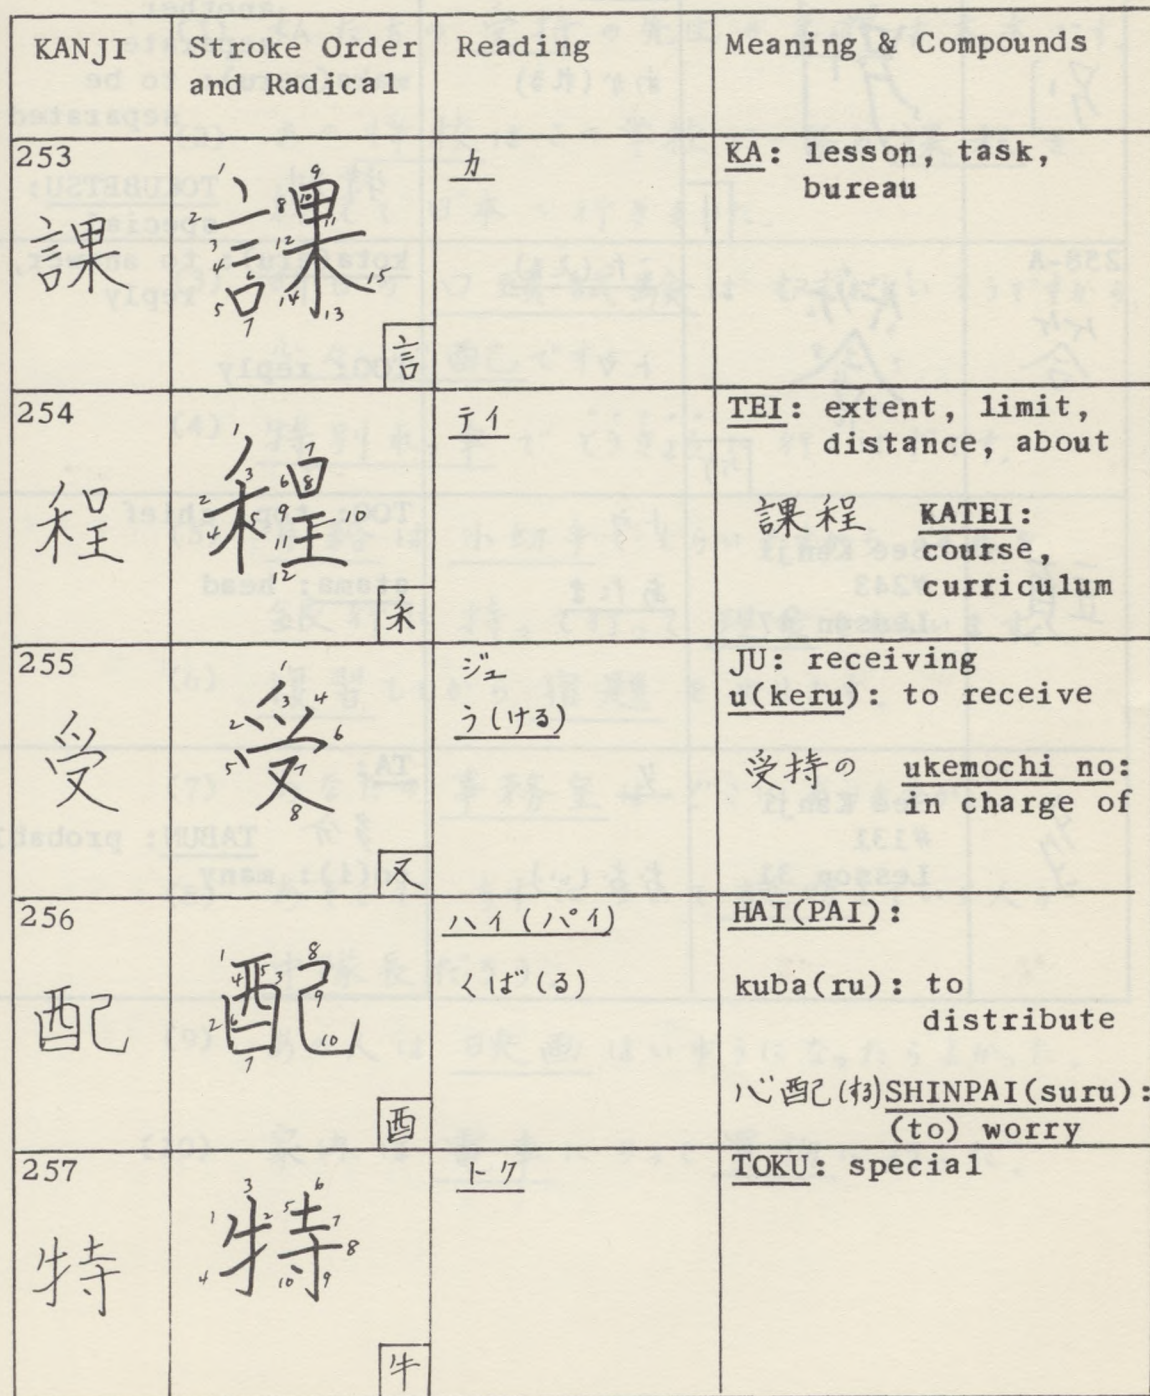 KANJI
Stroke Order
and Radical
Reading
Meaning & Compounds
253
課
課
1 2 3 4 5 6 7 8 9 10 11 12 13 14 15
言
カ
KA: lesson, task,
bureau
254
程
程
1 2 3 4 5 6 7 8 9 10 11 12
禾
テイ
TEI: extent, limit,
distance, about
課程 KATEI:
course,
curriculum
255
受
受
1 2 3 4 5 6 7 8
又
ジュ
う(ける)
JU: receiving
u(keru): to receive
受持の ukemochi no:
in charge of
256
配
配
1 2 3 4 5 6 7 8 9 10
酉
ハイ(パイ)
くば(る)
HAI(PAI):
kuba(ru): to
distribute
心配(する)SHINPAI(suru):
(to) worry
257
特
特
1 2 3 4 5 6 7 8 9 10
牛
トク
TOKU: special